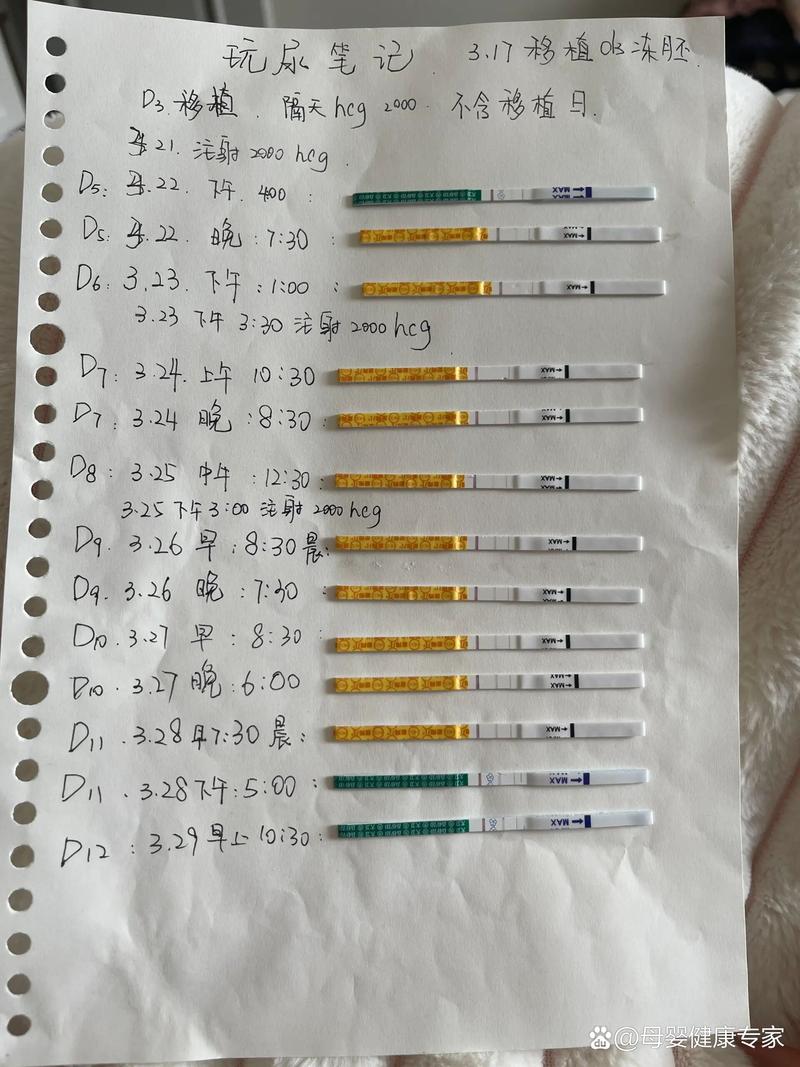 玩尿笔记. 3.17移植D3冻胚.
D3.移植. 隔天hcg 2000. 不含移植日.
3.21. 注射2000 hcg.
D5: 3.22. 下午. 400:
D5: 3.22. 晚:7:30:
D6: 3.23. 下午:1:00:
3.23 下午 3:30 注射2000 hcg.
D7: 3.24. 上午 10:30
D7: 3.24 晚:8:30:
D8: 3.25 中午:12:30:
3.25 下午3:00 注射2000 hcg
D9. 3.26 早:8:30晨:
D9. 3.26 晚:7:30:
D10.3.27 早:8:30:
D10.3.27 晚:6:00
D11.3.28早7:30晨:
D11.3.28下午:5:00:
D12:3.29早上10:30:
MAX
MAX
MAX
MAX
MAX
MAX
MAX
MAX
MAX
MAX
MAX
MAX
MAX
@母婴健康专家